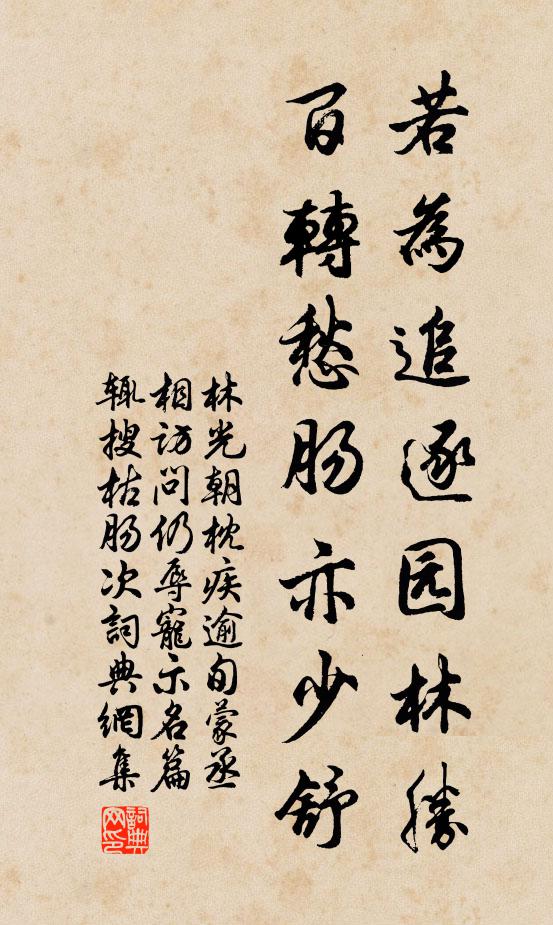 若為追逐园林勝
百轉愁肠亦少舒
林光朝枕疾逾旬蒙丞
相访问仍辱寵示名篇
辄搜枯肠次詞典網集
詞典网印